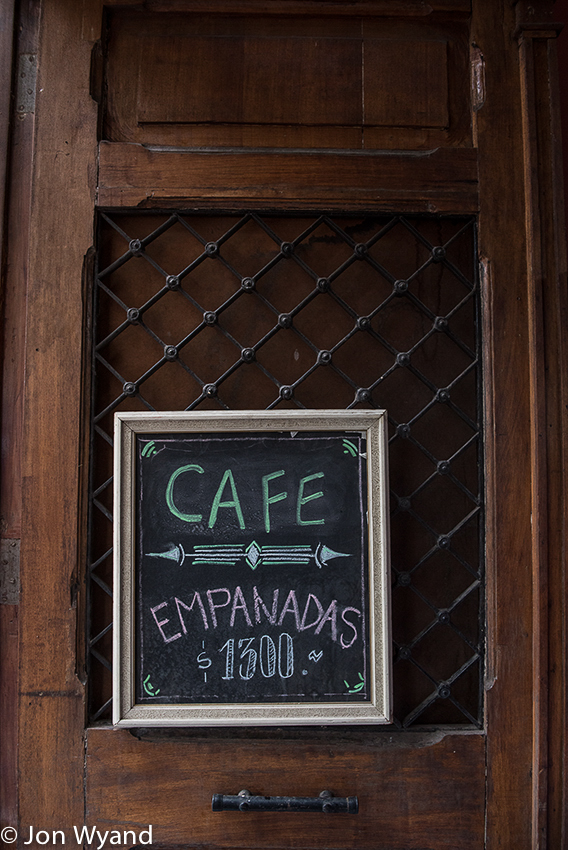 CAFE
EMPANADAS
$1300.~
© Jon Wyand